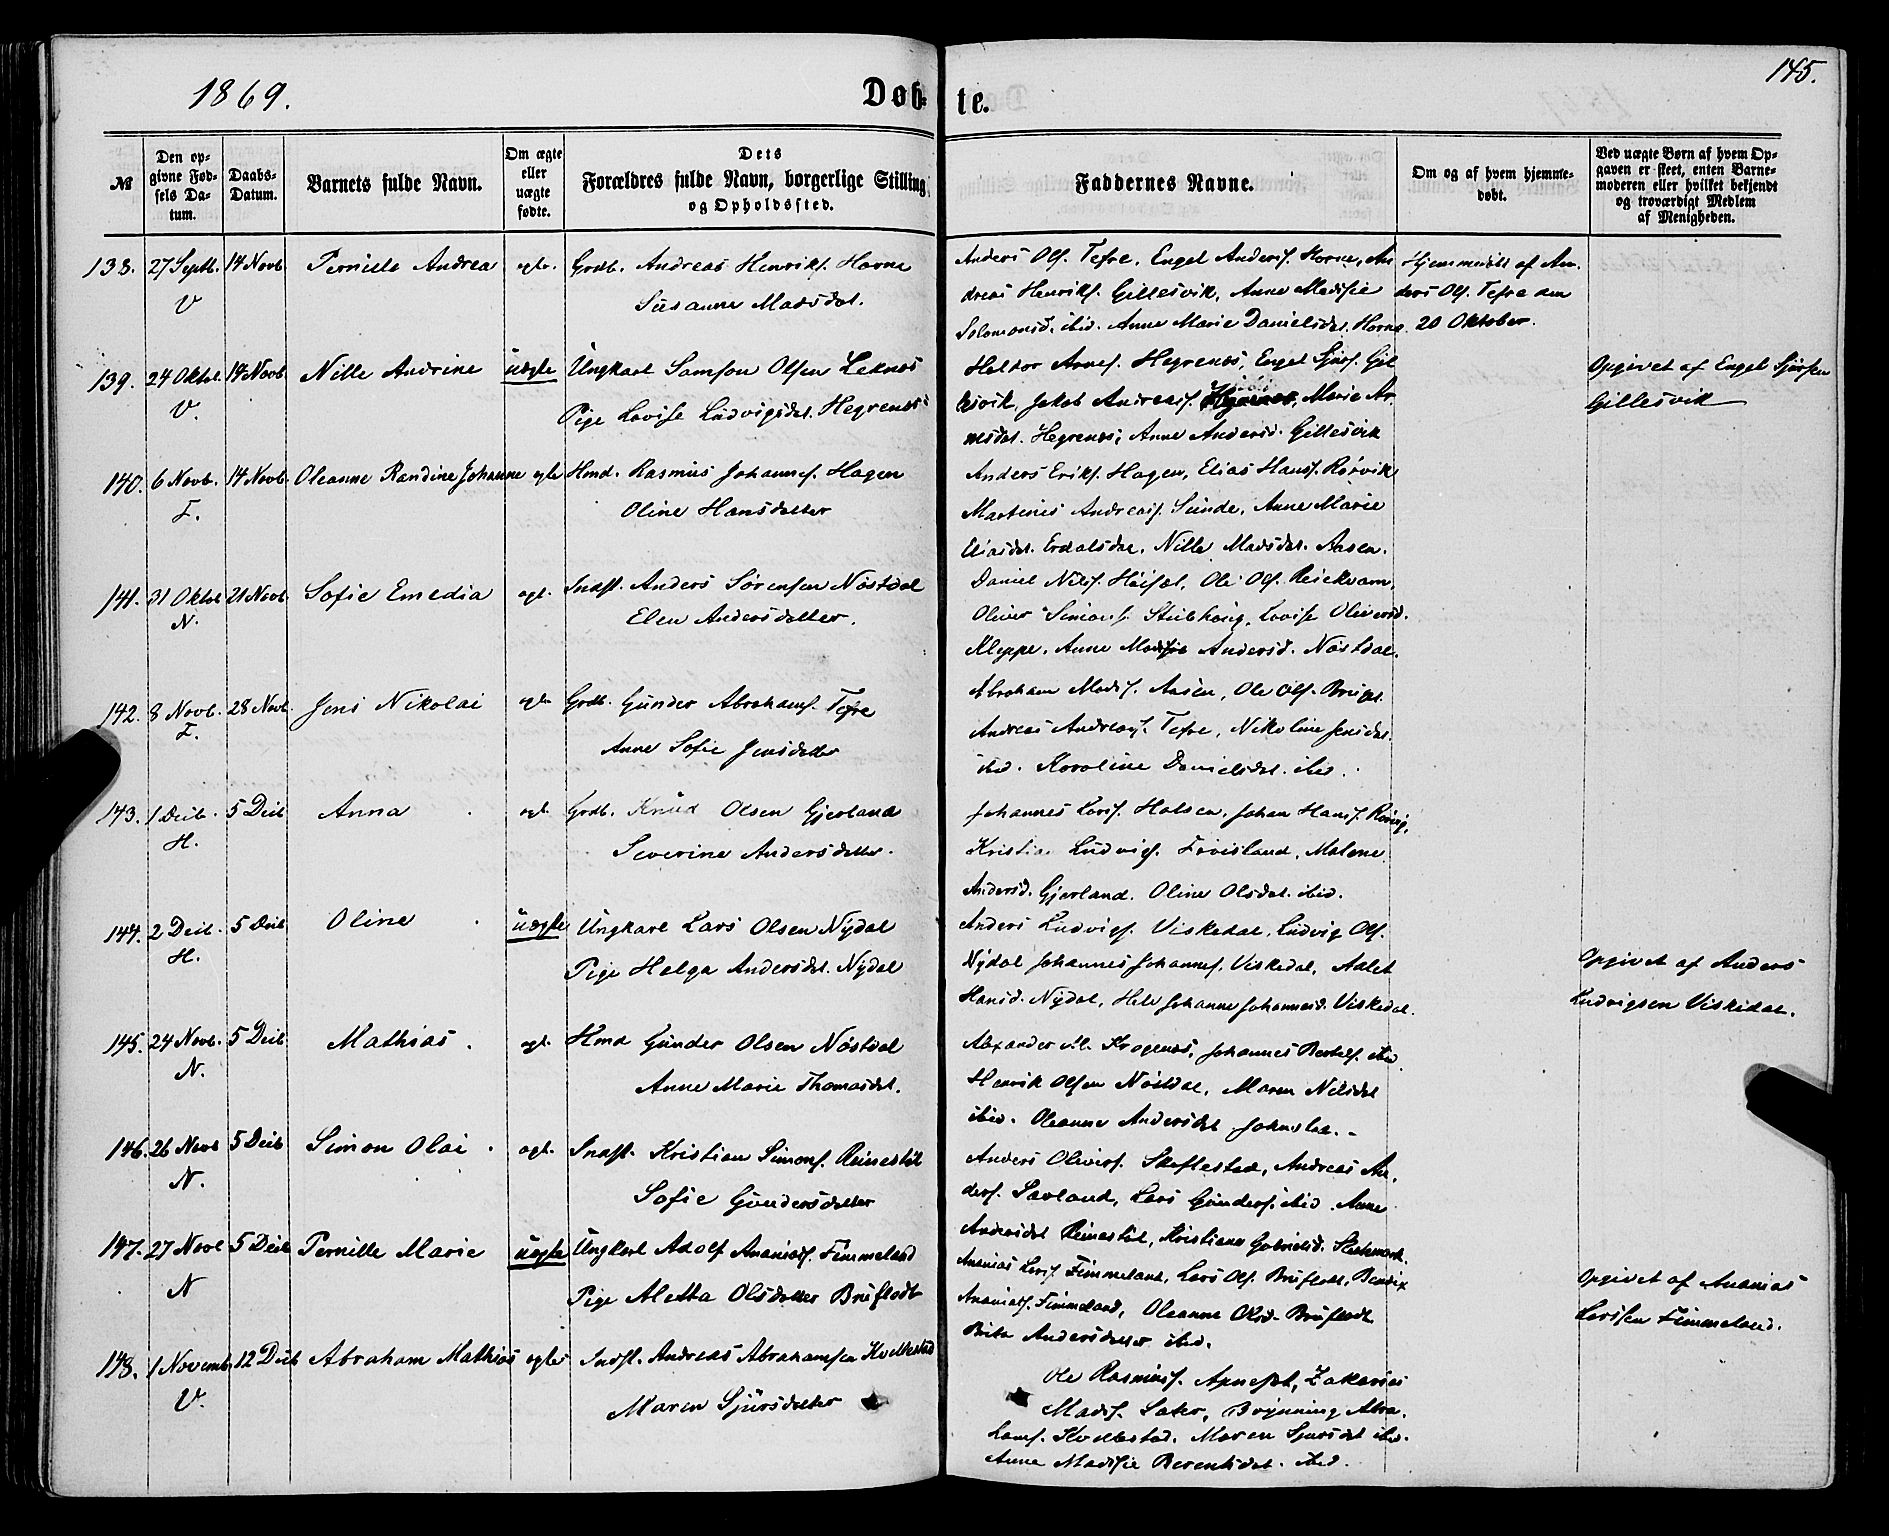 1869.
Døb-
te.
145.
№
Den op-
givne Fød-
sels Da-
tum.
Daabs-
Datum.
Barnets fulde Navn.
Om ægte
eller
uægte
fødte.
Dets
Forældres fulde Navn, borgerlige Stilling
og Opholdssted.
Faddernes Navne.
Om og af hvem hjemme-
døbt.
Ved uægte Børn af hvem Op-
gaven er skeet, enten Barne-
moderen eller hvilket bekjendt
og troværdigt Medlem
af Menigheden.
138. 27 Septb. 14 Novb. Pernille Andrea egte. Grdb. Andreas Henriks. Horne
V Susanne Madsdat.
Anders Ols. Tefre, Engel Anders. Horne, An
dreas Henriks. Gillesvik, Anne Madsie
Solomonsd. ibid. Anne Marie Danielsdat. Horne
Hjemmedøbt af An-
ders Ols. Tefre den
20 Oktober.
139. 24 Oktbr. 14 Novb. Nille Andrine uegte Ungkarl Samson Olsen Leknes
V. Pige Lovise Ludvigsdat. Hegrenes
Heldor Arnes. Hegrenes, Engel Sjurs. Gil
lesvik, Jakob Andreass. Marie Ar
nesdat. Hegrenes, Anne Andersd. Gillesvik
Opgivet af Engel Sjursen
Gillesvik
140. 6 Novb. 14 Novb. Oleanne Randine Johanne egte Hmd. Rasmus Johannes. Hagen
F. Oline Hansdatter
Anders Eriks. Hagen, Elias Hans. Rørvik
Martinus Andreass. Sunde, Anne Marie
Eliasdat. Erdalsdal, Nille Madsdat. Aasen.
141. 31 Oktbr 21 Novb. Sofie Emedia egt. Indst. Anders Sørensen Nøstdal
N. Elen Andersdatter.
Daniel Nils. Ole Ols. Reickvam,
Oliver Simons. Stubhoug, Lovise Oliversd.
Kleppe, Anne Madsie Andersd. Nøstdal.
142. 8 Novb. 28 Novb. Jens Nikolai egte Grdb. Gunder Abrahams. Tefre
F. Anne Sofie Jensdatter
Abraham Mads. Aasen, Ole Ols.
Andreas Andreass. Tefre, Nikoline Jensdat.
ibid. Karoline Danielsdat. ibid.
143. 1 Decb. 5 Decb Anna egt. Grdb. Knud Olsen Gjerland
H. Severine Andersdatter.
Johannes Lars. Halsen, Johan Hans. Rørvig,
Kristian Ludvigs. Førisland, Malene
Andersd. Gjerland. Oline Olsdat. ibid.
144. 2 Decb. 5 Decb Oline uegte Ungkarl Lars Olsen Nydal
H. Pige Helga Andersdat. Nydal
Anders Ludvigs. Viskedal, Ludvig Ols.
Nydal Johannes Johannes. Viskedal, Adlet
Hansd. Nydal, Hele Johanne Johannesd. Viskedal.
Opgivet af Anders
Ludvigsen Viskedal.
145. 24 Novb. 5 Decb Mathias. egt. Hmd Gunder Olsen Nøstdal
N. Anne Marie Thomasdat.
Alexander Kragenes, Johannes Bertels. ibid
Henrik Olsen Nøstdal, Maren Nilsdat
ibid. Oleanne Andersdat
146. 26 Novb 5 Decb Simon Olai. egt. Indst. Kristian Simons. Reinestøl
N. Sofie Gundersdatter
Anders Olivers. Skeflestad, Andreas An-
ders. Savland, Lars Gunders. ibid Anne
Andersdat Reinestøl, Kristiane Gabrielsd.
147. 27 Novb 5 Decb Pernille Marie uegte Ungkarl Adolf Ananiass. Fimmeland
N Pige Aletta Olsdatter Bruflodt
Ananias Lars. Fimmeland, Lars Ols. Bruflodt, Bendix
Ananiass. Fimmeland, Oleanne Olsd. Bruflodt
Brita Andersdatter ibid.
Opgivet af Ananias
Larssen Fimmeland.
148. 1 Novemb. 12 Decb Abraham Mathias egte Indst. Andreas Abrahamsen Kvellestad
V. Maren Sjursdatter
Ole Rasmus. Zakarias
Mads. Sater, Brynning Abra-
hams. Kvellestad, Maren Sjursdat ibid.
Anne Madsie Berentsdat. ibid.